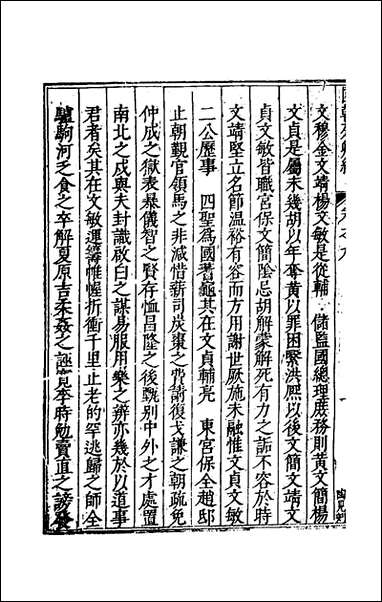 文穆金文靖楊文敏是從輔　儲監國總理庶務則黃文簡楊
文貞是屬未幾胡以年奪黃以罪囚繫洪熙以後文簡文靖文
貞文敏皆職宮保文簡陰忌胡解蒙解死有力之詬不容於時
文靖堅立名節溫裕有容而方用謝世厥施未融惟文貞文敏
二公歷事　四聖為國蓍龜其在文貞輔亮　東宮保全趙邸
止朝覲官領馬之非減惜薪司炭棗之費請復戈謙之朝疏免
仲成之獄表暴儀智之賢存恤昌隆之後甄別中外之才處置
南北之戍與夫封識啟白之謀易服用樂之辨亦幾於以道事
君者矣其在文敏運籌帷幄折衝千里止老的罕逃歸之師全
驢駒河乏食之卒解夏原吉柔姦之誣寬李時勉賣直之謗發